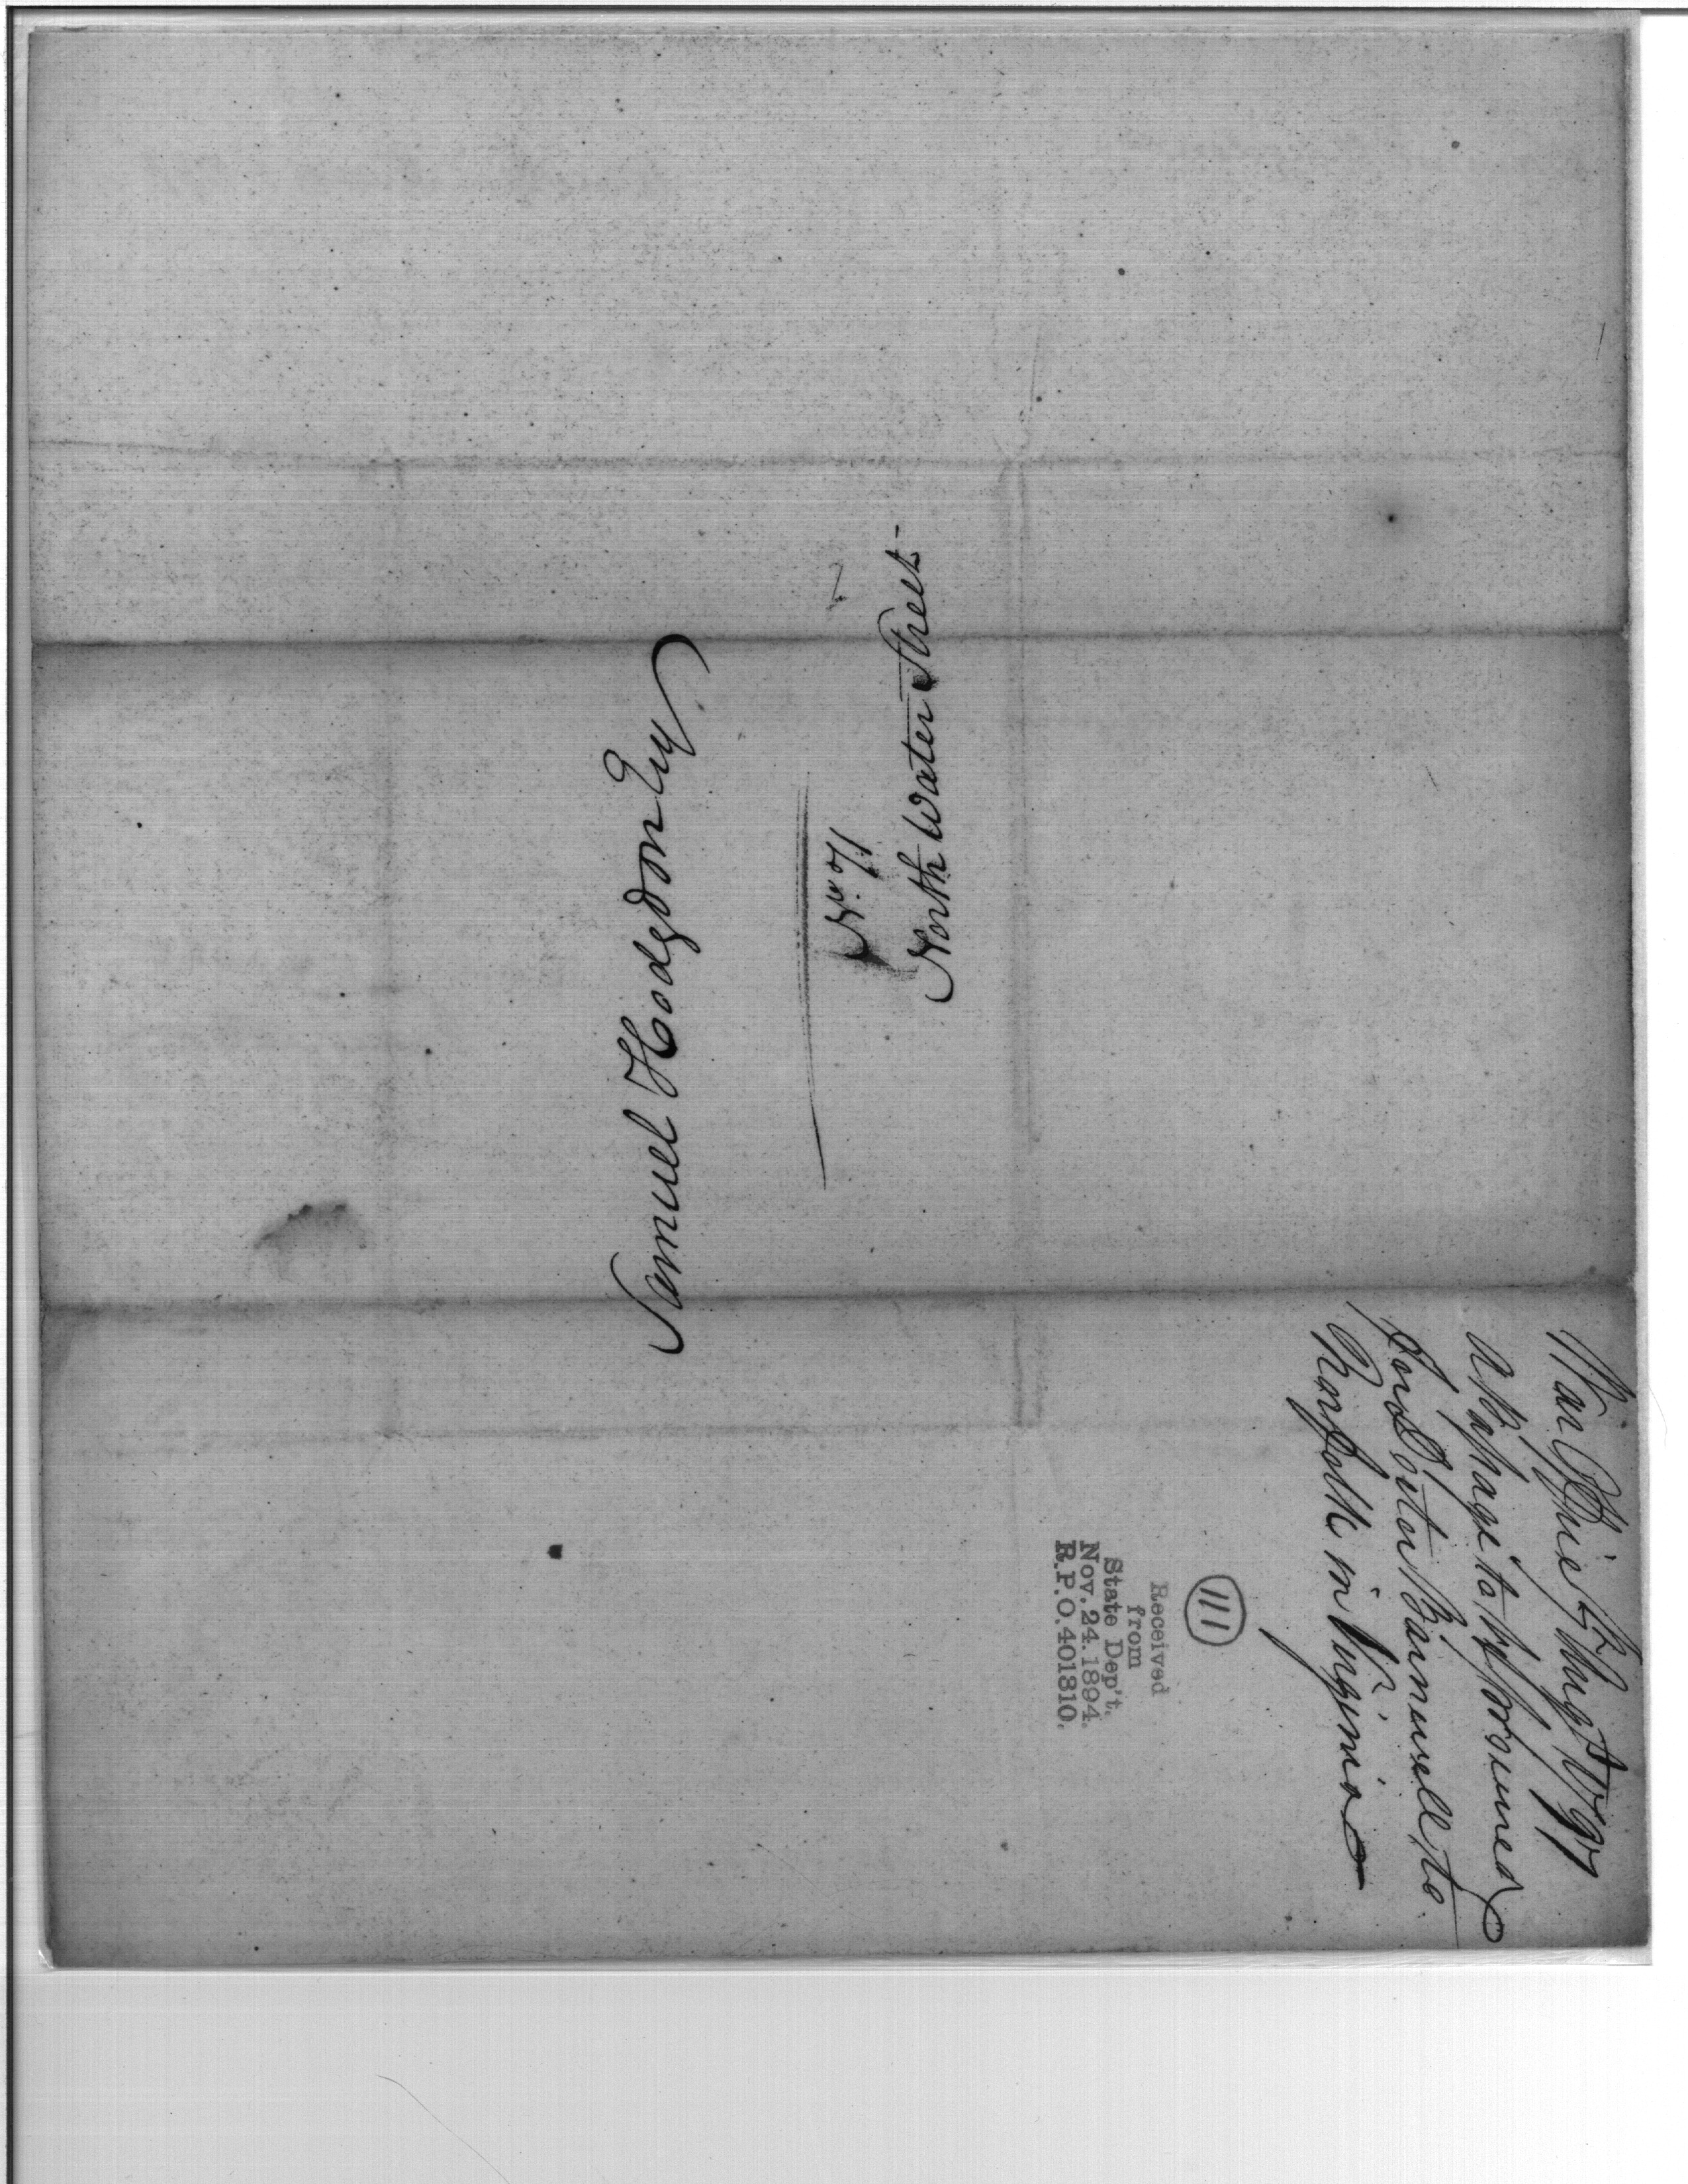 Samuel Hodgdon Esq
No. 71
North Water Street
War Office 12 Augt 1797
a Passage to be procured
for Doctor Barnwell to
Norfolk in Virginia
111
Received
from
State Dep't.
Nov. 24. 1894.
R.P.O. 401310.